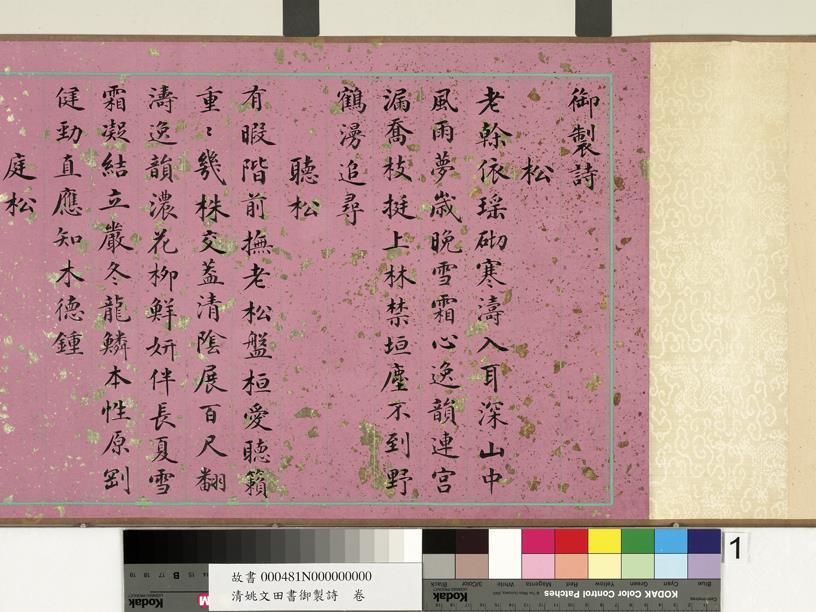 御製詩
松
老榦依瑶砌寒濤入耳深山中
風雨夢歲晚雪霜心逸韻連宮
漏喬枝挺上林禁垣塵不到野
鶴漫追尋
聽松
有暇階前撫老松盤桓愛聽籟
重〻幾株交葢清陰展百尺翻
濤逸韻濃花柳鮮妍伴長夏雪
霜凝結立嚴冬龍鱗本性原劉
健勁直應知木德鍾
庭松
故書 000481N000000000
清姚文田書御製詩 卷
1
KODAK Color Control Patches
Blue
Cyan
Green
Yellow
Red
Magenta
White
3/Color
Black
Kodak
Kodak
M
B